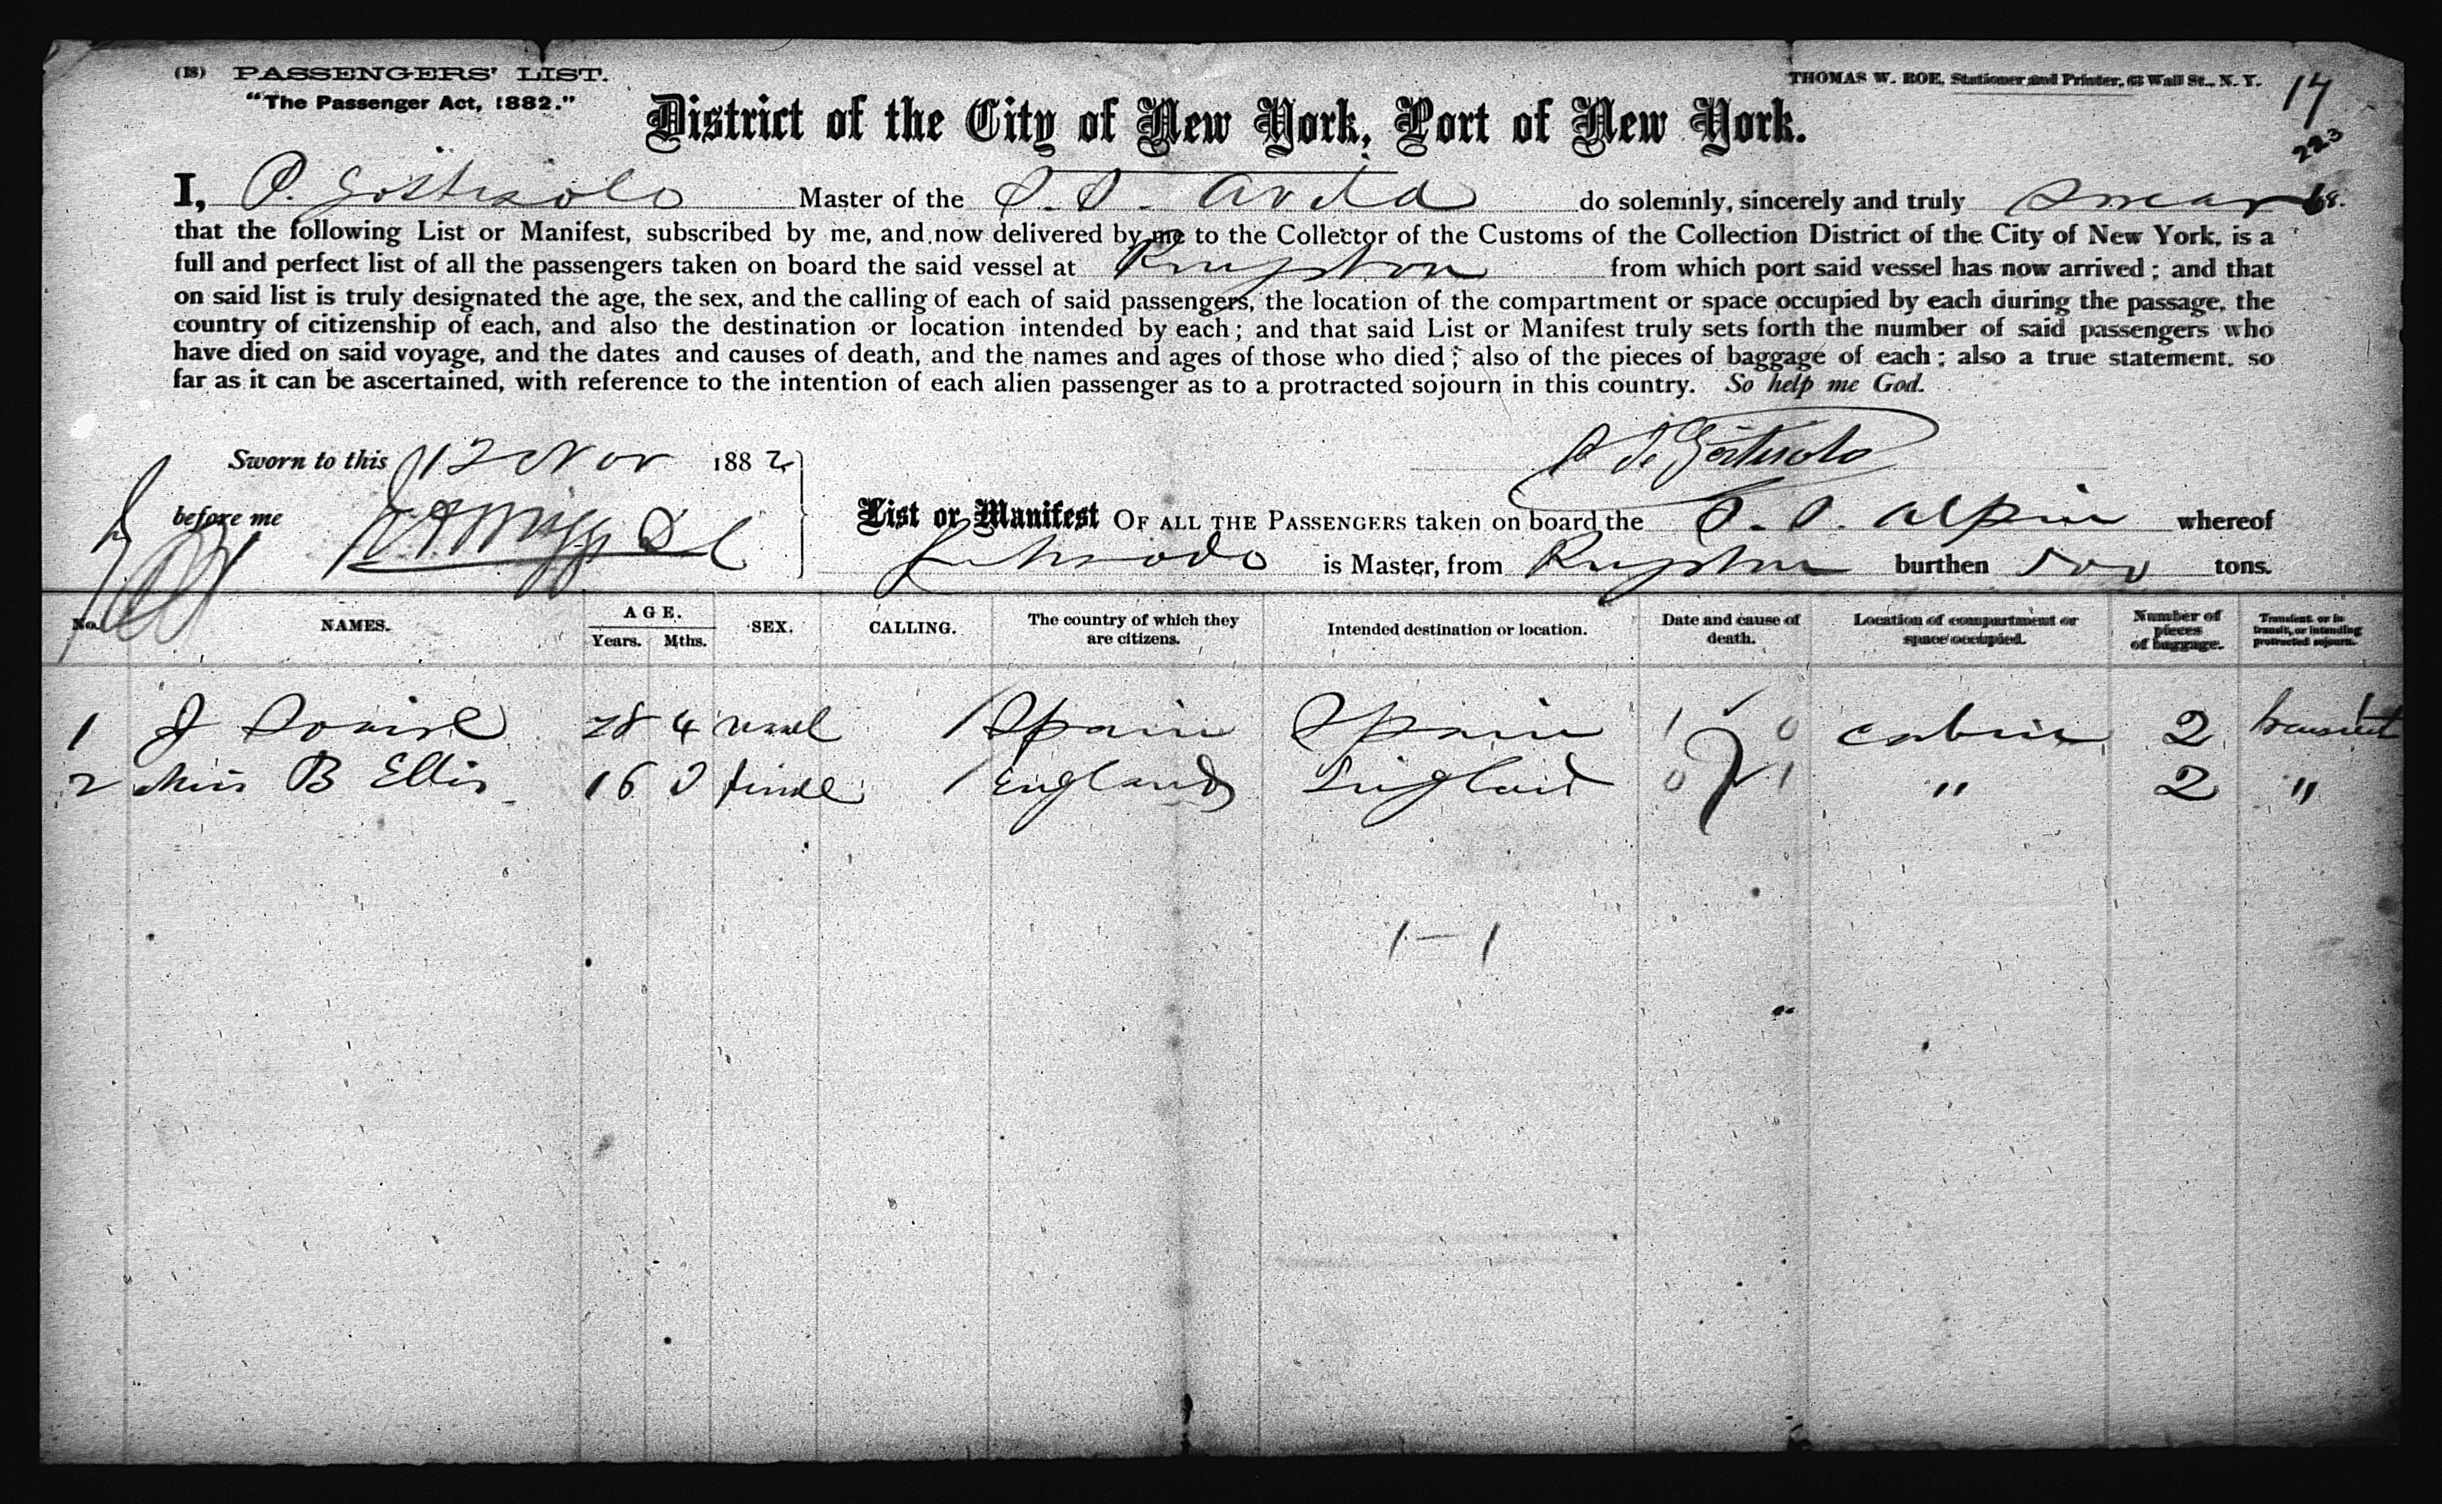 (18) PASSENGERS' LIST.
"The Passenger Act, 1882."
THOMAS W. ROE, Stationer and Printer, 63 Wall St., N. Y.
17
223
District of the City of New York, Port of New York.
I, P. Master of the S.S. do solemnly, sincerely and truly swear
that the following List or Manifest, subscribed by me, and now delivered by me to the Collector of the Customs of the Collection District of the City of New York, is a
full and perfect list of all the passengers taken on board the said vessel at from which port said vessel has now arrived; and that
on said list is truly designated the age, the sex, and the calling of each of said passengers, the location of the compartment or space occupied by each during the passage, the
country of citizenship of each, and also the destination or location intended by each; and that said List or Manifest truly sets forth the number of said passengers who
have died on said voyage, and the dates and causes of death, and the names and ages of those who died; also of the pieces of baggage of each; also a true statement, so
far as it can be ascertained, with reference to the intention of each alien passenger as to a protracted sojourn in this country. So help me God.
Sworn to this 12 Nov 1882
before me
List or Manifest OF ALL THE PASSENGERS taken on board the S.S. whereof
is Master, from burthen tons.
No. NAMES. AGE. Years. Mths. SEX. CALLING. The country of which they are citizens. Intended destination or location. Date and cause of death. Location of compartment or space occupied. Number of pieces of baggage. Transient or in transit, or intending protracted sojourn.
1 J 28 4 Spain Spain 1 0 cabin 2
2 Miss B Ellis 16 England England 0 1 " 2 "
1 — 1